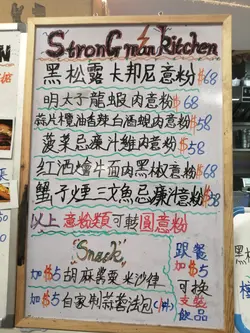 StronG man Kitchen
黑松露卡邦尼意粉 $68
明太子龍蝦肉意粉 $58
蒜片欖油香辣白酒蜆肉意粉 $58
菠菜忌廉汁雞肉意粉 $58
紅酒燴牛面肉黑椒意粉 $68
蟹子煙三文魚忌廉汁意粉 $58
以上意粉類可轉圓意粉
Snack
加 $5 胡麻粟米沙律
加 $5 自家制蒜蓉法包
跟餐
加 $5
可換
支裝
飲品